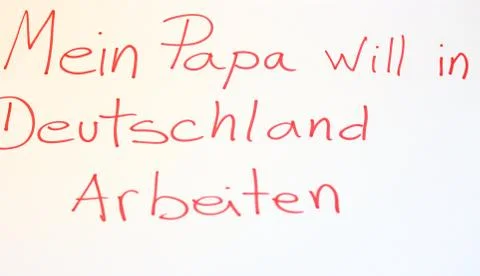 Mein Papa will in
Deutschland
Arbeiten